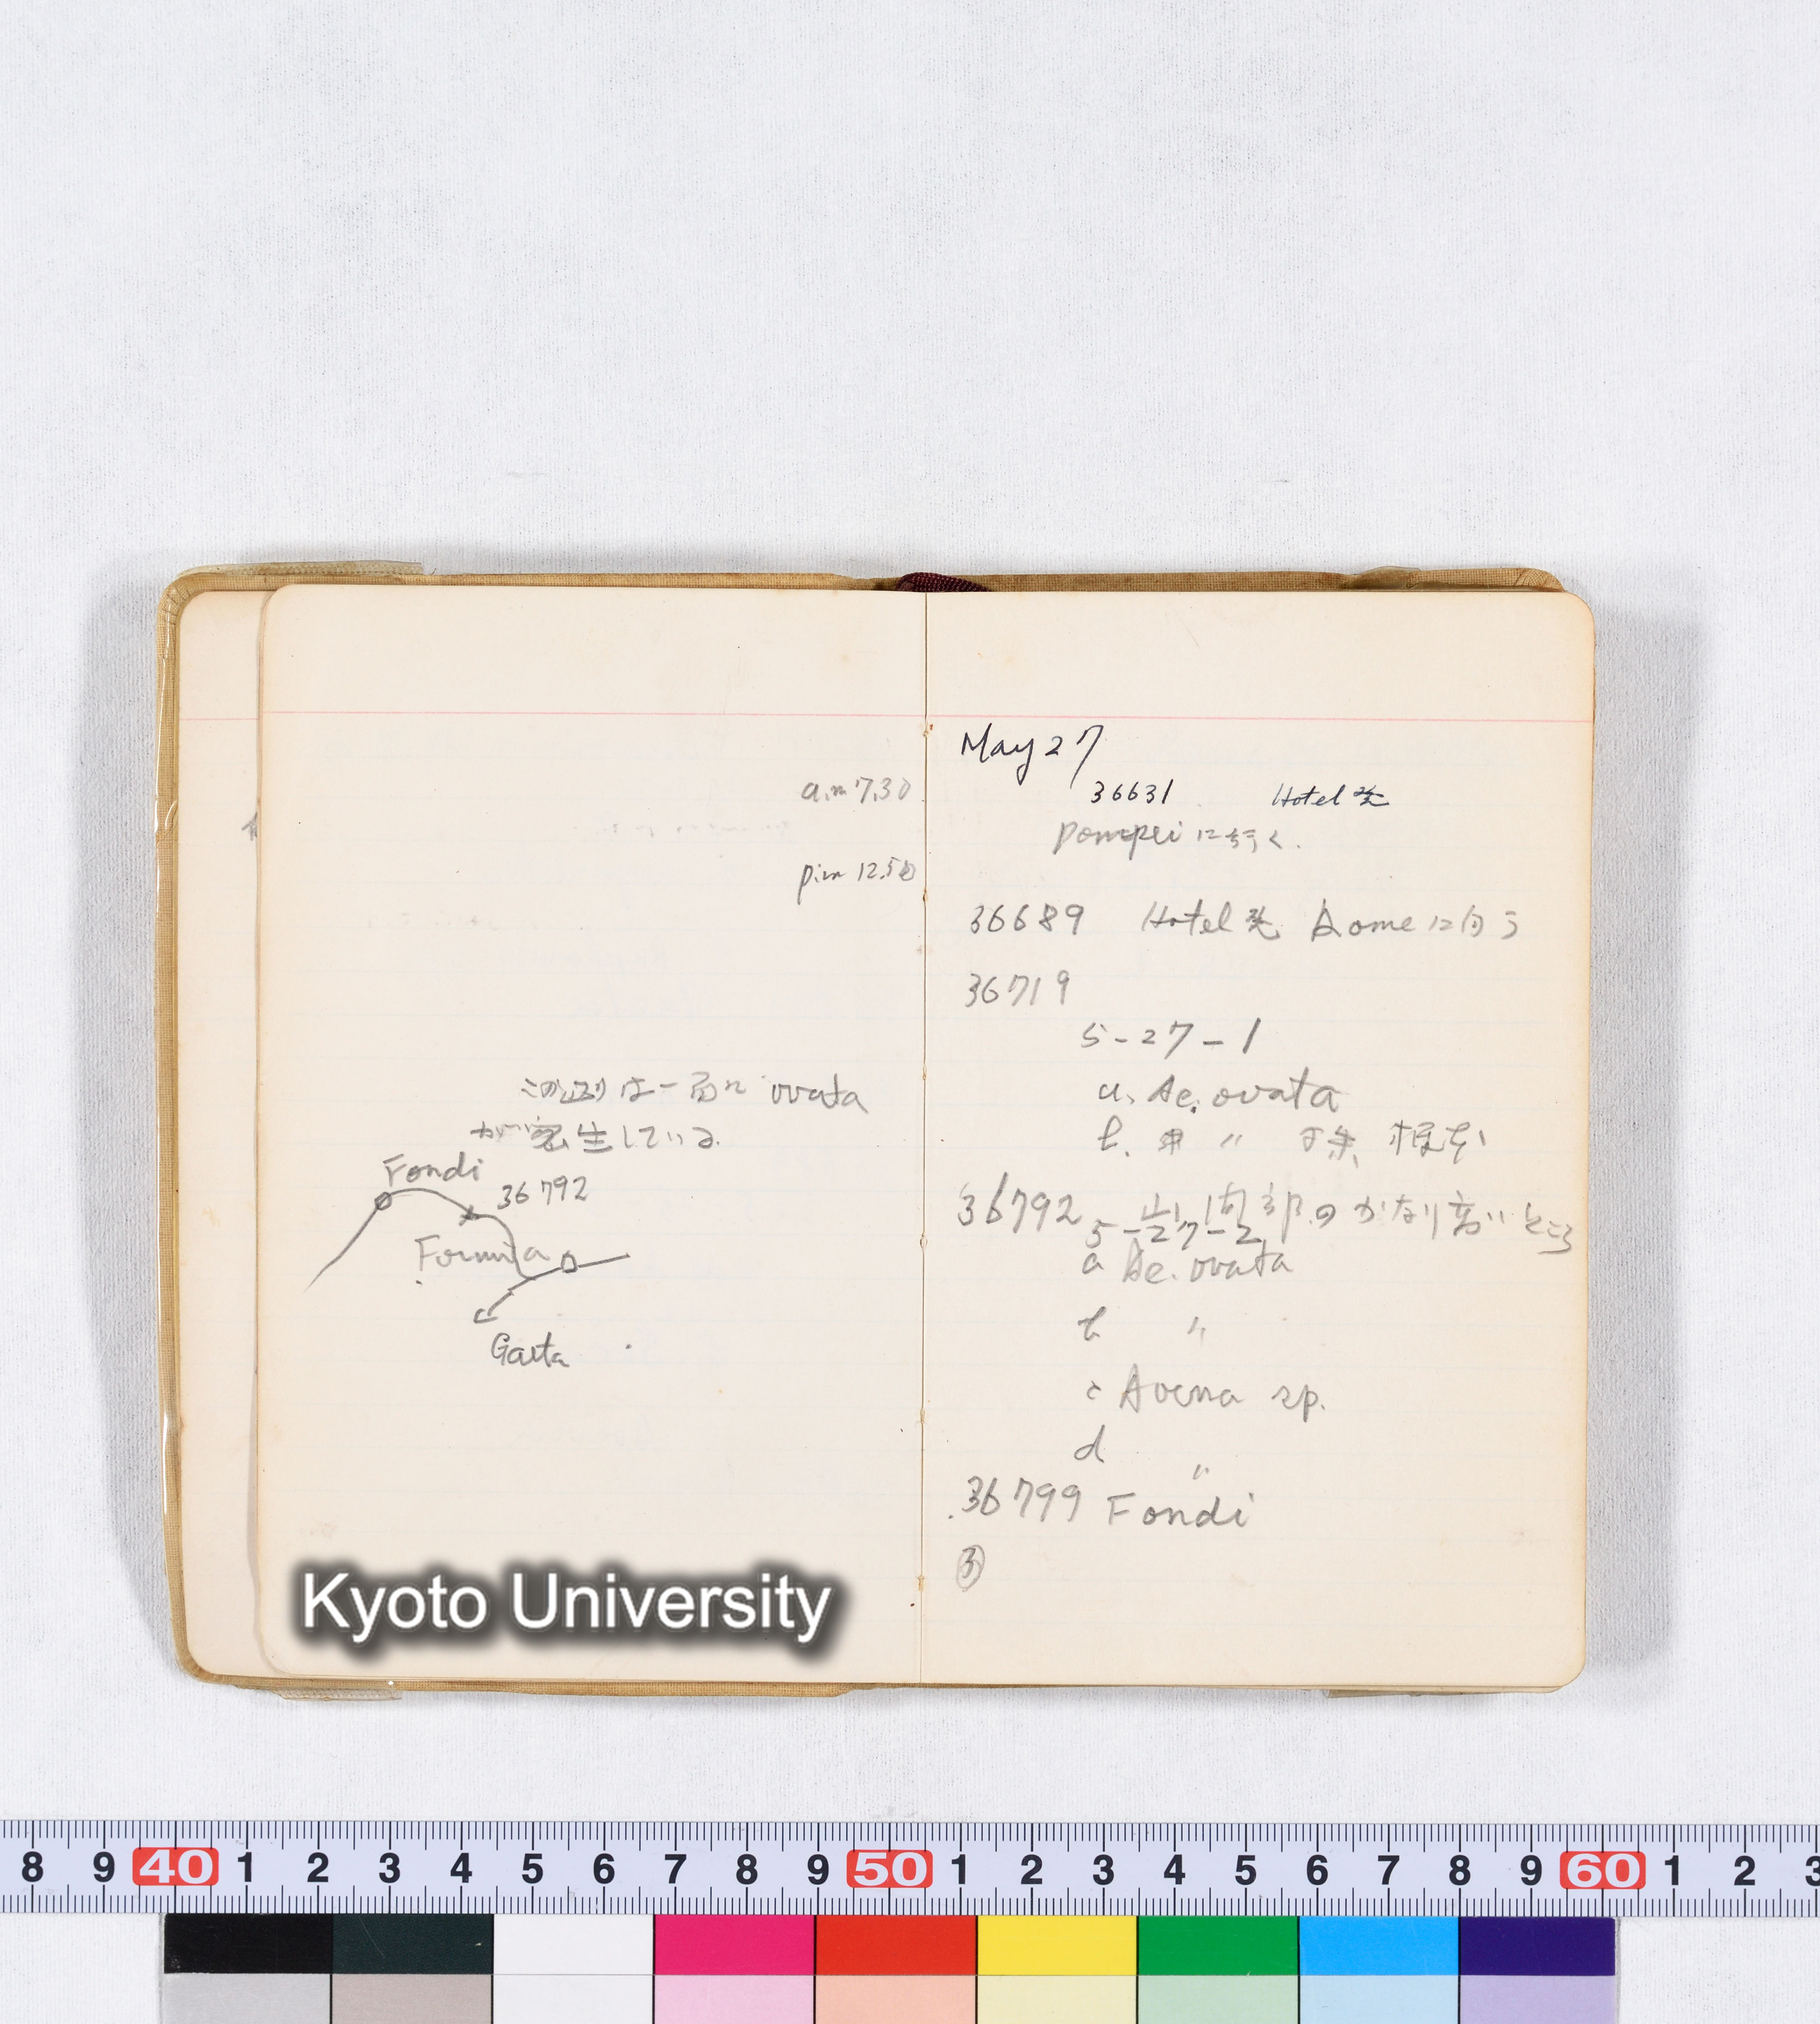 a.m 7.30
p.m 12.50
この辺りは一面に ovata
が密生している
Fondi
36792
Formia
Gaeta
May 27
36631 Hotel発
Pompeiに行く.
36689 Hotel発 Romeに向う
36719
5-27-1
a. Ae. ovata
b. 〃
36792 山間部のかなり高いところ
5-27-2
a Ae. ovata
b 〃
c Avena sp.
d 〃
36799 Fondi
③
Kyoto University
8 9 40 1 2 3 4 5 6 7 8 9 50 1 2 3 4 5 6 7 8 9 60 1 2 3